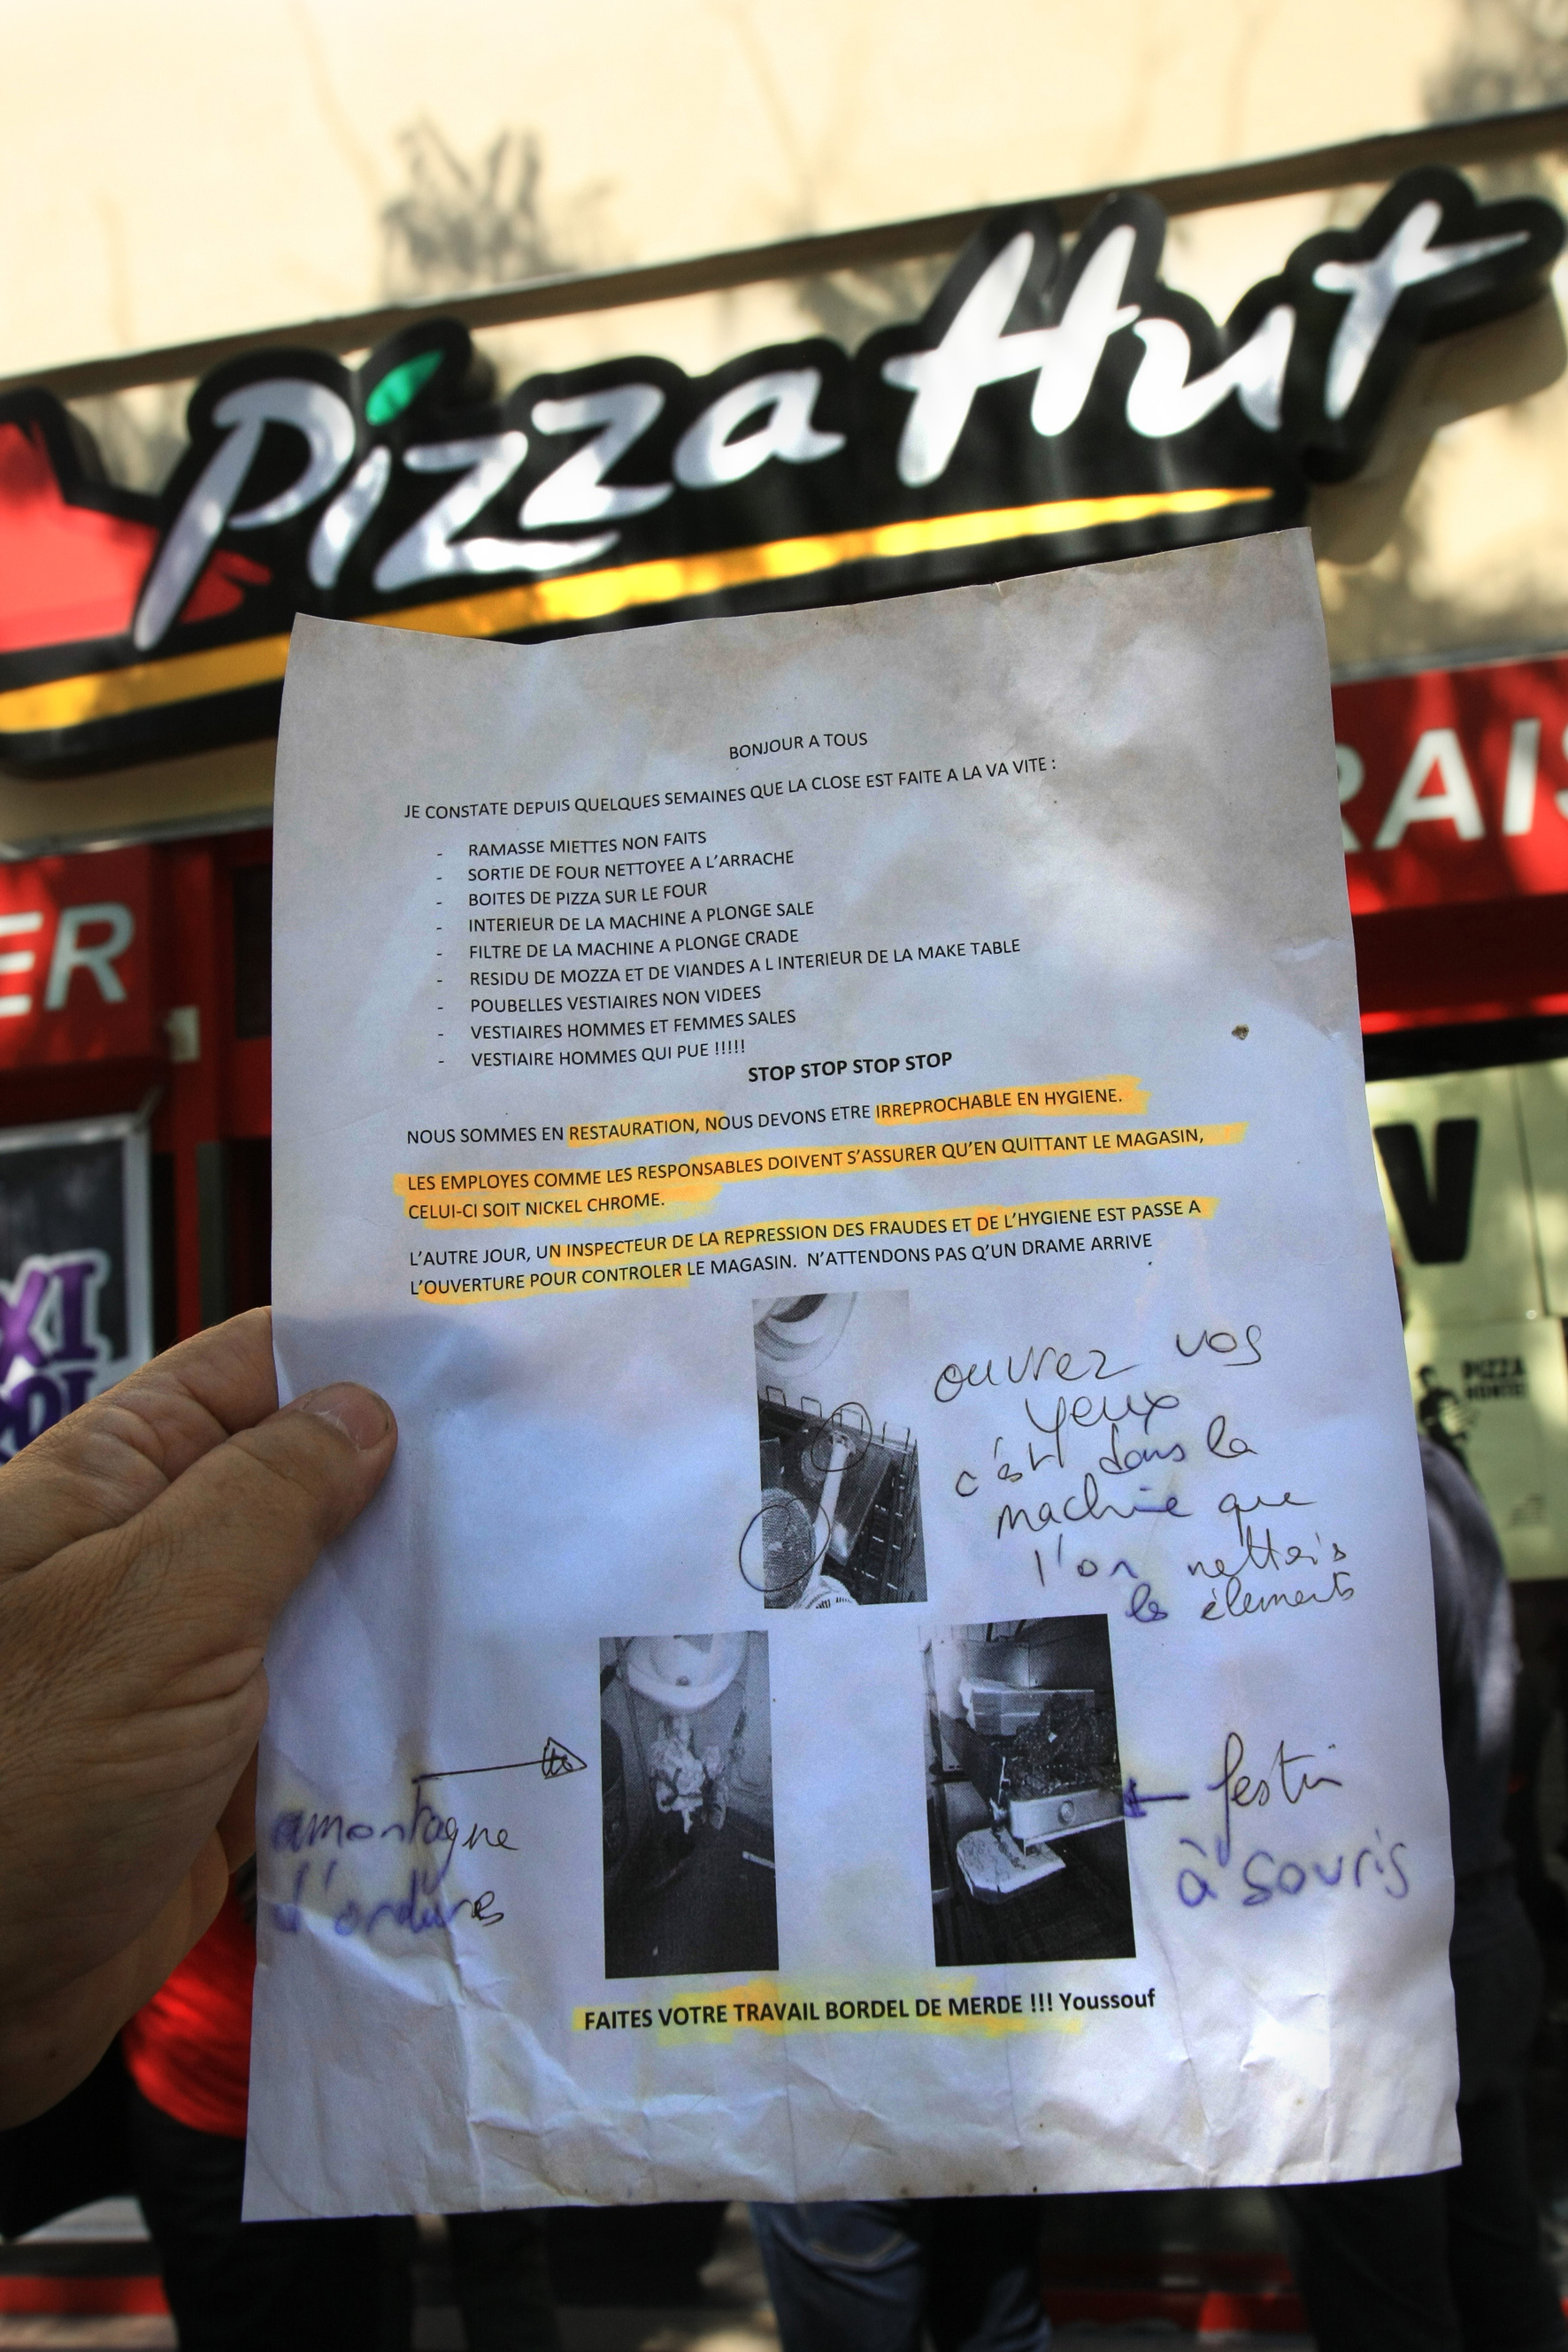 Pizza Hut
RAIS
ER
BONJOUR A TOUS
JE CONSTATE DEPUIS QUELQUES SEMAINES QUE LA CLOSE EST FAITE A LA VA VITE :
- RAMASSE MIETTES NON FAITS
- SORTIE DE FOUR NETTOYEE A L'ARRACHE
- BOITES DE PIZZA SUR LE FOUR
- INTERIEUR DE LA MACHINE A PLONGE SALE
- FILTRE DE LA MACHINE A PLONGE CRADE
- RESIDU DE MOZZA ET DE VIANDES A L INTERIEUR DE LA MAKE TABLE
- POUBELLES VESTIAIRES NON VIDEES
- VESTIAIRES HOMMES ET FEMMES SALES
- VESTIAIRE HOMMES QUI PUE !!!!!
STOP STOP STOP STOP
NOUS SOMMES EN RESTAURATION, NOUS DEVONS ETRE IRREPROCHABLE EN HYGIENE.
LES EMPLOYES COMME LES RESPONSABLES DOIVENT S'ASSURER QU'EN QUITTANT LE MAGASIN,
CELUI-CI SOIT NICKEL CHROME.
L'AUTRE JOUR, UN INSPECTEUR DE LA REPRESSION DES FRAUDES ET DE L'HYGIENE EST PASSE A
L'OUVERTURE POUR CONTROLER LE MAGASIN. N'ATTENDONS PAS Q'UN DRAME ARRIVE
ouvrez vos
yeux
c'est dans la
machine que
l'on nettois
les élements
montagne
d'ordures
festin
à souris
FAITES VOTRE TRAVAIL BORDEL DE MERDE !!! Youssouf
V
PIZZA
XI